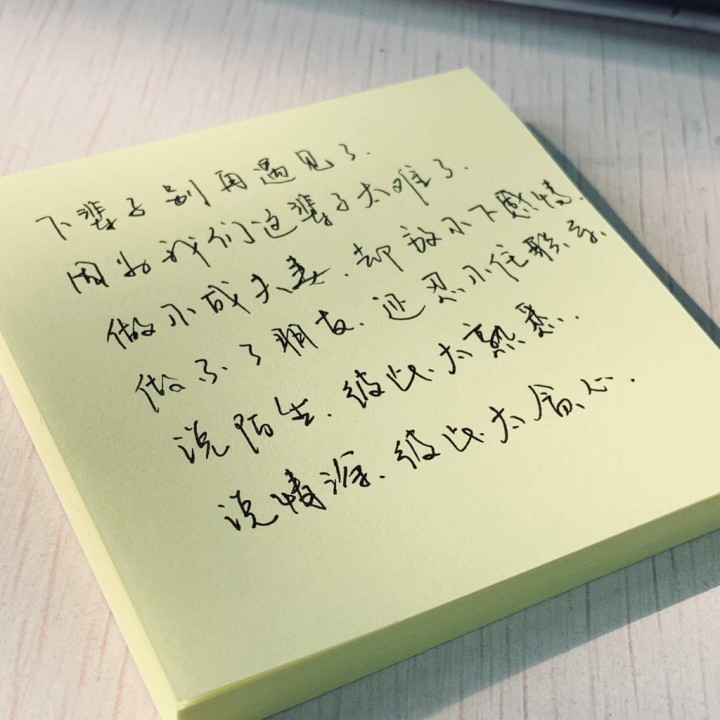 下辈子别再遇见了.
因为我们这辈子太难了.
做不成夫妻.却放不下感情.
做不了朋友.还忍不住联系.
说陌生.彼此太熟悉.
说情深.彼此太贪心.